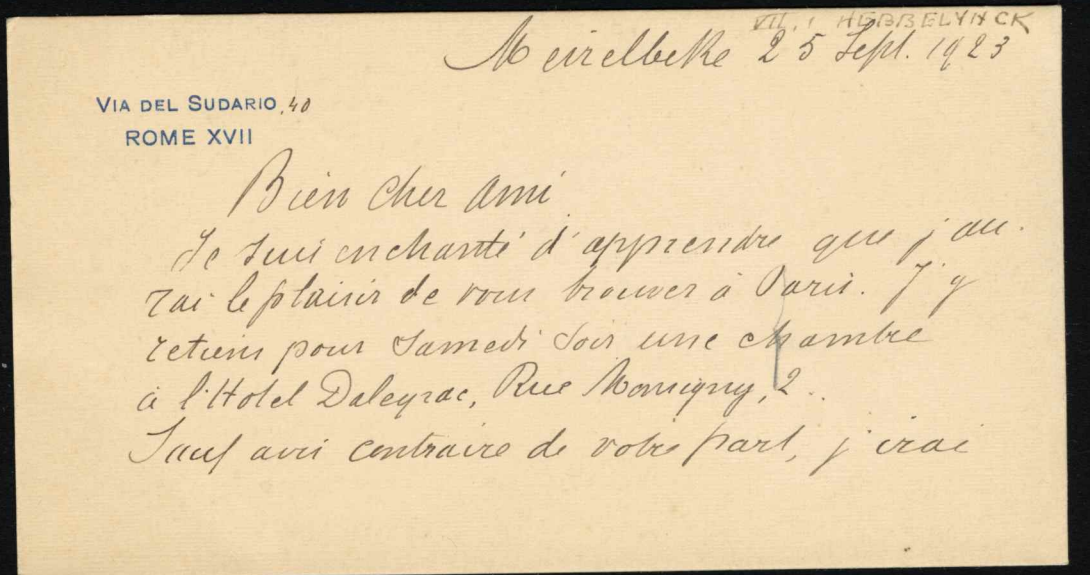 VII. : HEBBELYNCK
Meirelbeke 25 Sept. 1923
VIA DEL SUDARIO, 40
ROME XVII
Bien cher ami
Je suis enchanté d'apprendre que j'au-
rai le plaisir de vous trouver à Paris. J'y
retiens pour Samedi soir une chambre
à l'Hotel Daleyrac, Rue Monsigny, 2..
Sauf avis contraire de votre part, j'irai